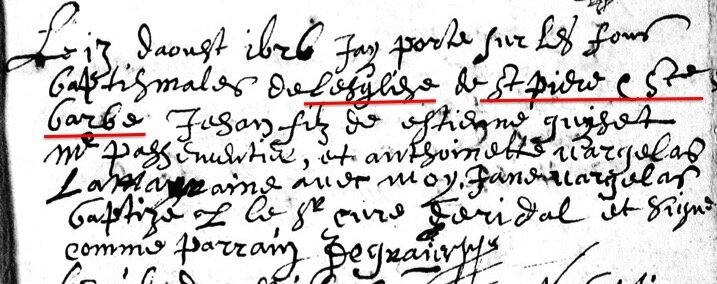 Le 13 daoust 1626 Jay porte sur les fons
baptismales de leesglise de St piere & Ste
barbe Jehan filz de estienne guyset
me passementier, et anthoinette vargelas
La maraine avec moy, Jane vargelas
baptize le sr cure et signe
comme parrain